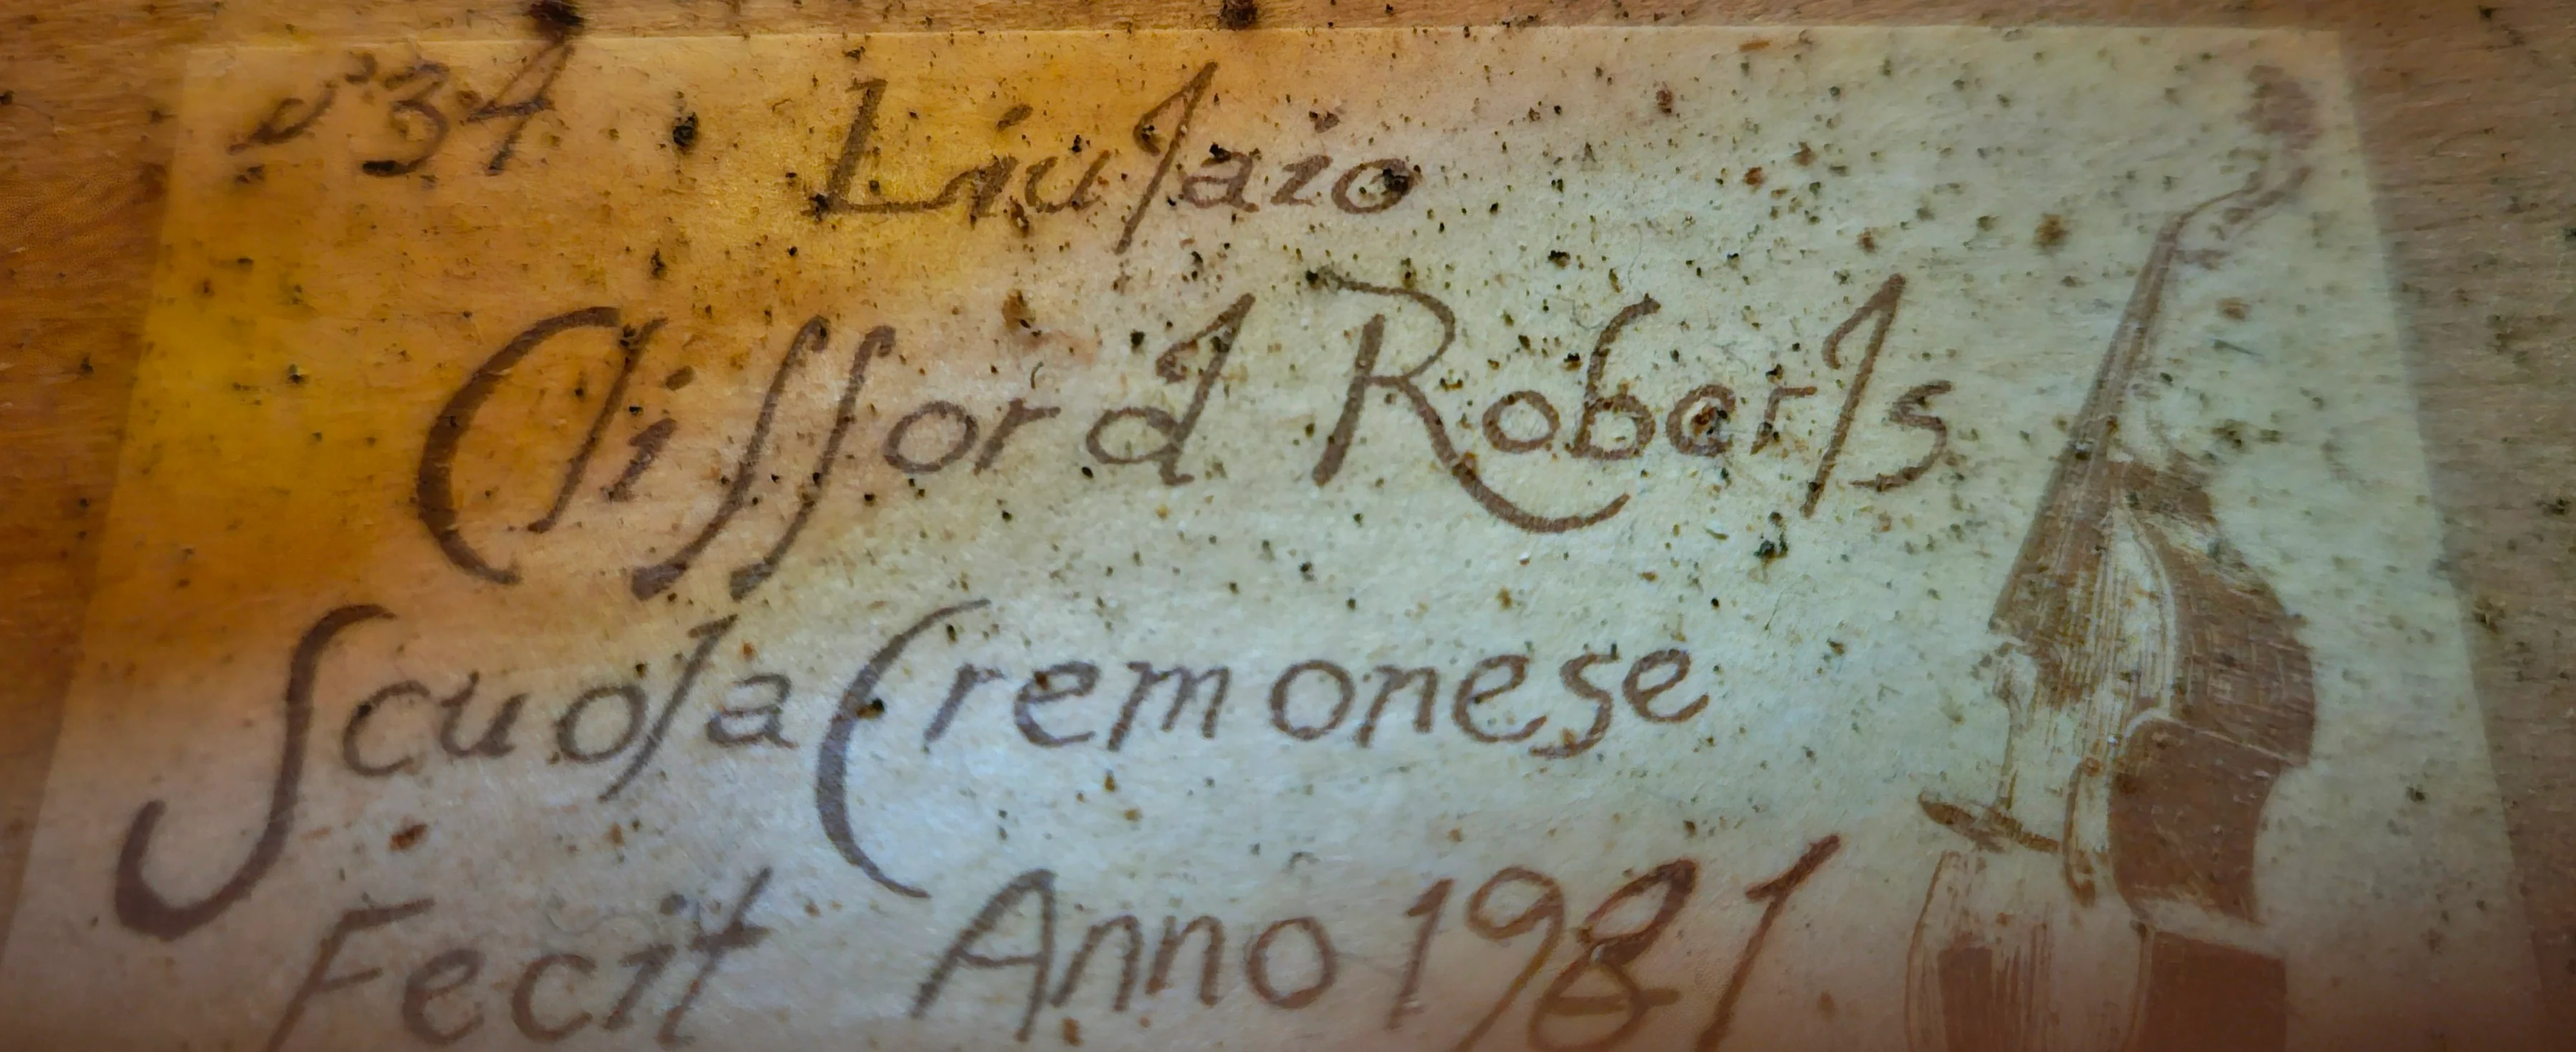 n° 34
Liutaio
Clifford Roberts
Scuola Cremonese
Fecit Anno 1981